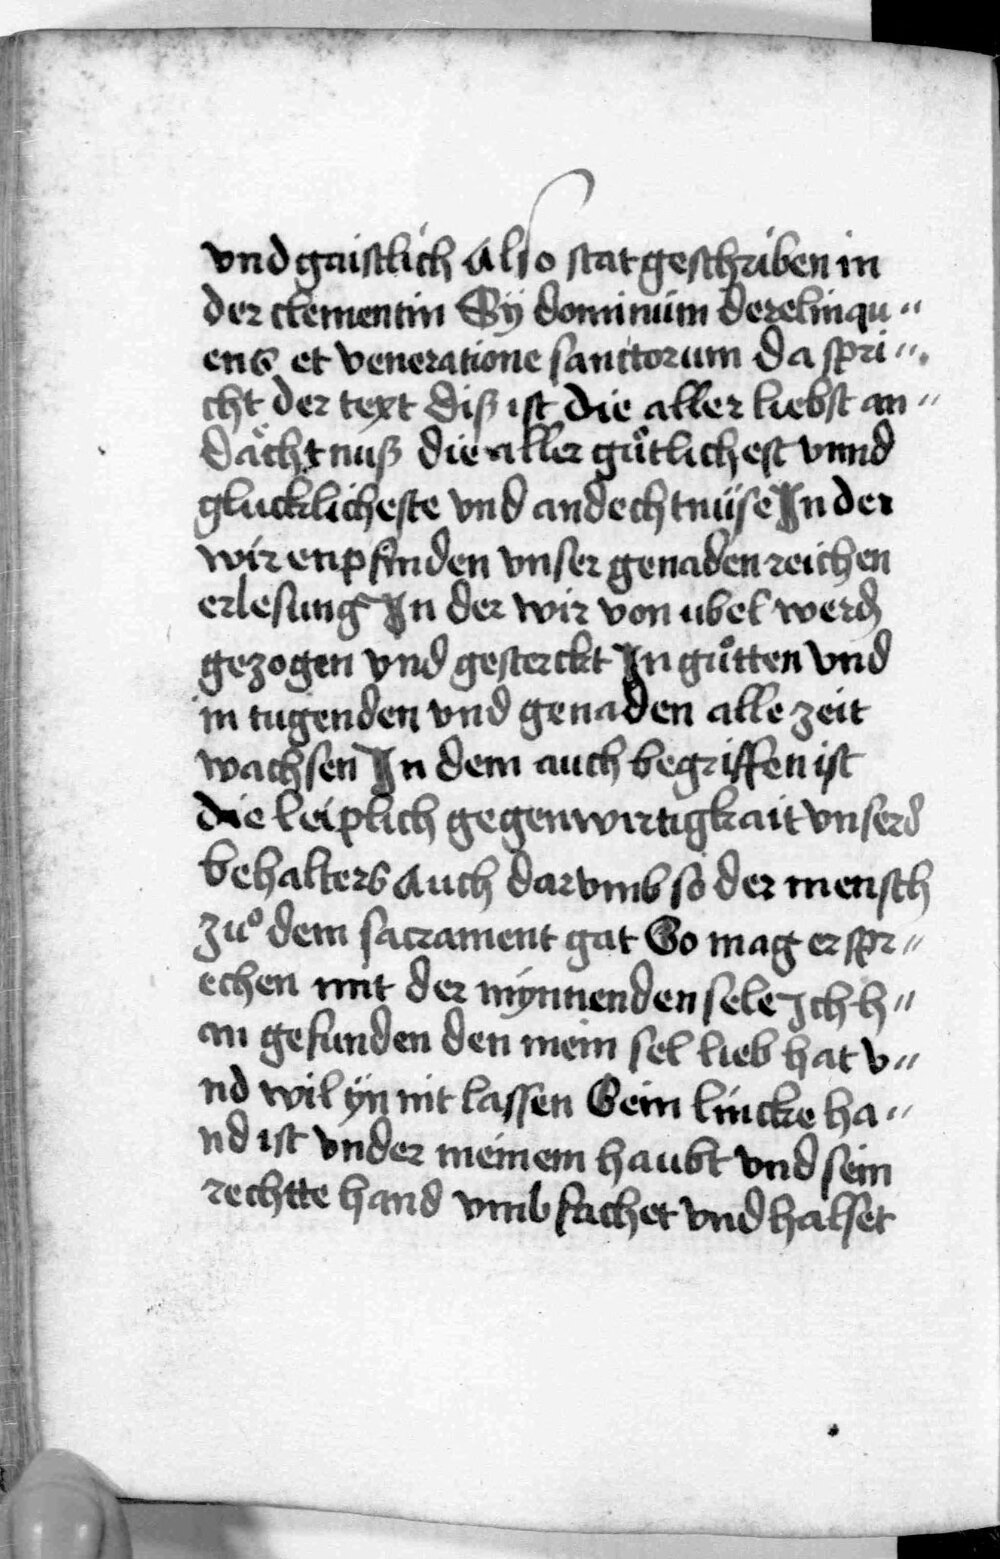 vnd gaistlich Also stat geschriben in
der clementin Sÿ dominum derelinqu〃
ens et veneratione sanctorum da spri〃
cht der text Diß ist die aller liebst an〃
dächtnuß die aller gůtlichest vnnd
glucklicheste vnd andechtnüse In der
wir enpfinden vnser genaden reichen
erlesung In der wir von ubel werdn
gezogen vnd gesterckt In gůtten vnd
in tugenden vnd genaden alle zeit
wachsen In dem auch begriffen ist
die leiplich gegenwirtigkait vnserd
behalters Auch darvmb so der mensch
zuͦ dem sacrament gat So mag er spr〃
echen mit der mynnenden sele Ich h〃
an gefunden den mein sel lieb hat v〃
nd wil ÿn nit lassen Sein lincke ha〃
nd ist vnder meinem haubt vnd sein
rechtte hand vmbfachet vnd halset